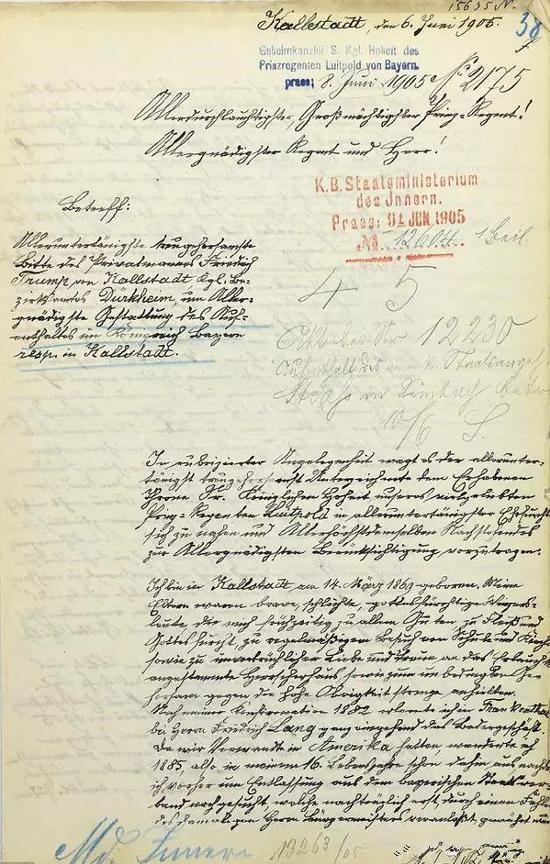 15635 N.
38
Kallstadt, den 6. Juni 1905.
Geheimkanzlei S. Kgl. Hoheit des
Prinzregenten Luitpold von Bayern.
praes: 8. Juni 1905 No 2175
Allerdurchlauchtigster, Großmächtigster Prinz-Regent!
Allergnädigster Regent und Herr!
K.B. Staatsministerium
des Innern.
Praes: 9. JUN. 1905
No. 12604. 1 Beil.
Betreff:
Alleruntertänigste treugehorsamste
Bitte des Privatmannes Friedrich
Trump von Kallstadt Kgl. Be-
zirksamtes Dürkheim, um Aller-
gnädigste Gestattung des Auf-
enthaltes im Königreich Bayern
resp. in Kallstadt.
4 5
No 12230
10/6 S.
In rubrizierter Angelegenheit wagt es der allerunter-
tänigst treugehorsamst Unterzeichnete dem Erhabenen
Throne Sr. Königlichen Hoheit unseres vielgeliebten
Prinz-Regenten Luitpold in alleruntertänigster Ehrfurcht
sich zu nahen und Allerhöchstdemselben Nachstehendes
zur Allergnädigsten Berücksichtigung vorzutragen.
Ich bin in Kallstadt am 14. März 1869 geboren. Meine
Eltern waren brave, schlichte, gottesfürchtige Winzers-
leute, die mich frühzeitig zu allem Guten zu Fleiß und
Gottesfurcht, zu regelmäßigem Besuch von Schule und Kirche
sowie zu unverbrüchlicher Liebe und Treue an das Erlaucht
angestammte Herrscherhaus sowie zum unbedingten Ge-
horsam gegen die hohe Obrigkeit strenge anhielten.
Nach meiner Konfirmation 1882 erlernte ich in Frankenthal
bei Herrn Friedrich Lang ganz eingehend das Badergeschäft.
Da wir Verwandte in Amerika hatten wanderte ich
1885, also in meinem 16. Lebensjahre schon dahin aus nachdem
ich vorher um Entlassung aus dem bayerischen Staatsver-
band nachgesucht, welche nachträglich erst durch einen
des damaligen Herrn Bürgermeisters veranlaßt, gewährt
Md. Innern 13263/05